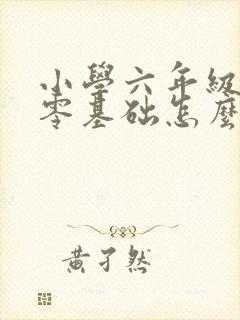 小學六年級
零基础怎麼
黄子然